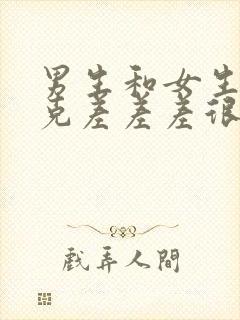 男生和女生
克差差差很
戲弄人間